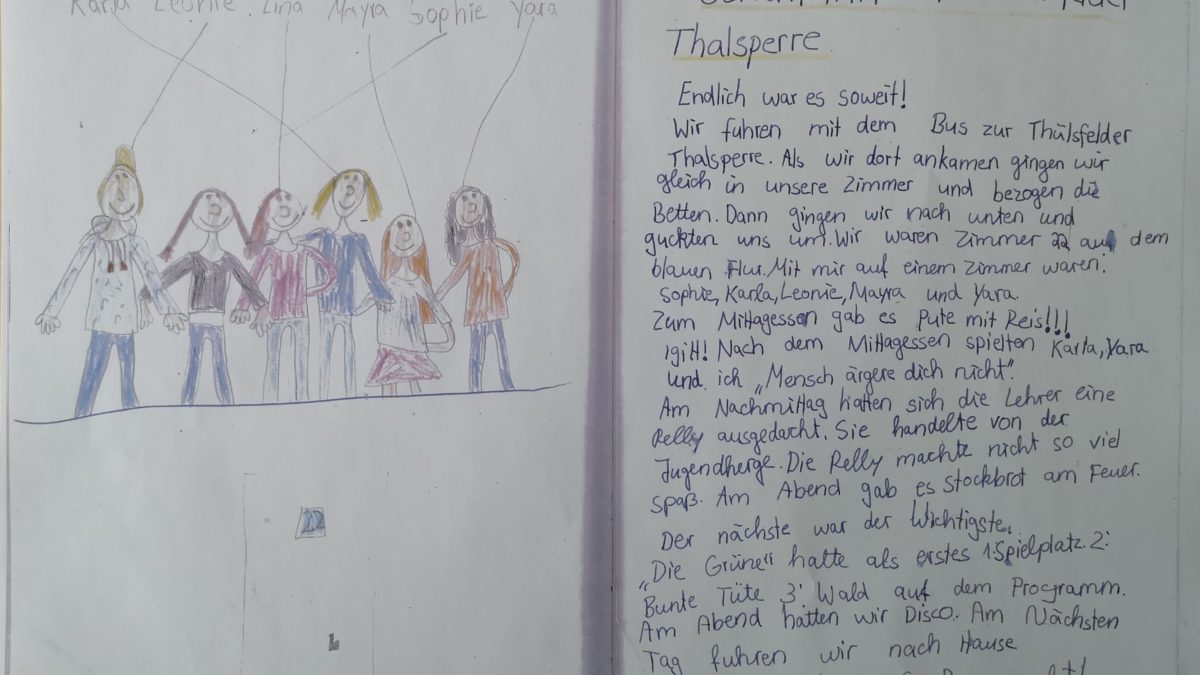 Karla Leonie Lina Mayra Sophie Yara
22
Thalsperre
Endlich war es soweit!
Wir fuhren mit dem Bus zur Thülsfelder
Thalsperre. Als wir dort ankamen gingen wir
gleich in unsere Zimmer und bezogen die
Betten. Dann gingen wir nach unten und
guckten uns um. Wir waren Zimmer 22 auf dem
blauen Flur. Mit mir auf einem Zimmer waren:
Sophie, Karla, Leonie, Mayra und Yara.
Zum Mittagessen gab es Pute mit Reis!!!
Igitt! Nach dem Mittagessen spielten Karla, Yara
und ich „Mensch ärgere dich nicht".
Am Nachmittag hatten sich die Lehrer eine
Relly ausgedacht. Sie handelte von der
Jugendherge. Die Relly machte nicht so viel
spaß. Am Abend gab es Stockbrot am Feuer.
Der nächste war der Wichtigste.
„Die Grüne" hatte als erstes 1. Spielplatz 2.
Bunte Tüte 3. Wald auf dem Programm.
Am Abend hatten wir Disco. Am Nächsten
Tag fuhren wir nach Hause